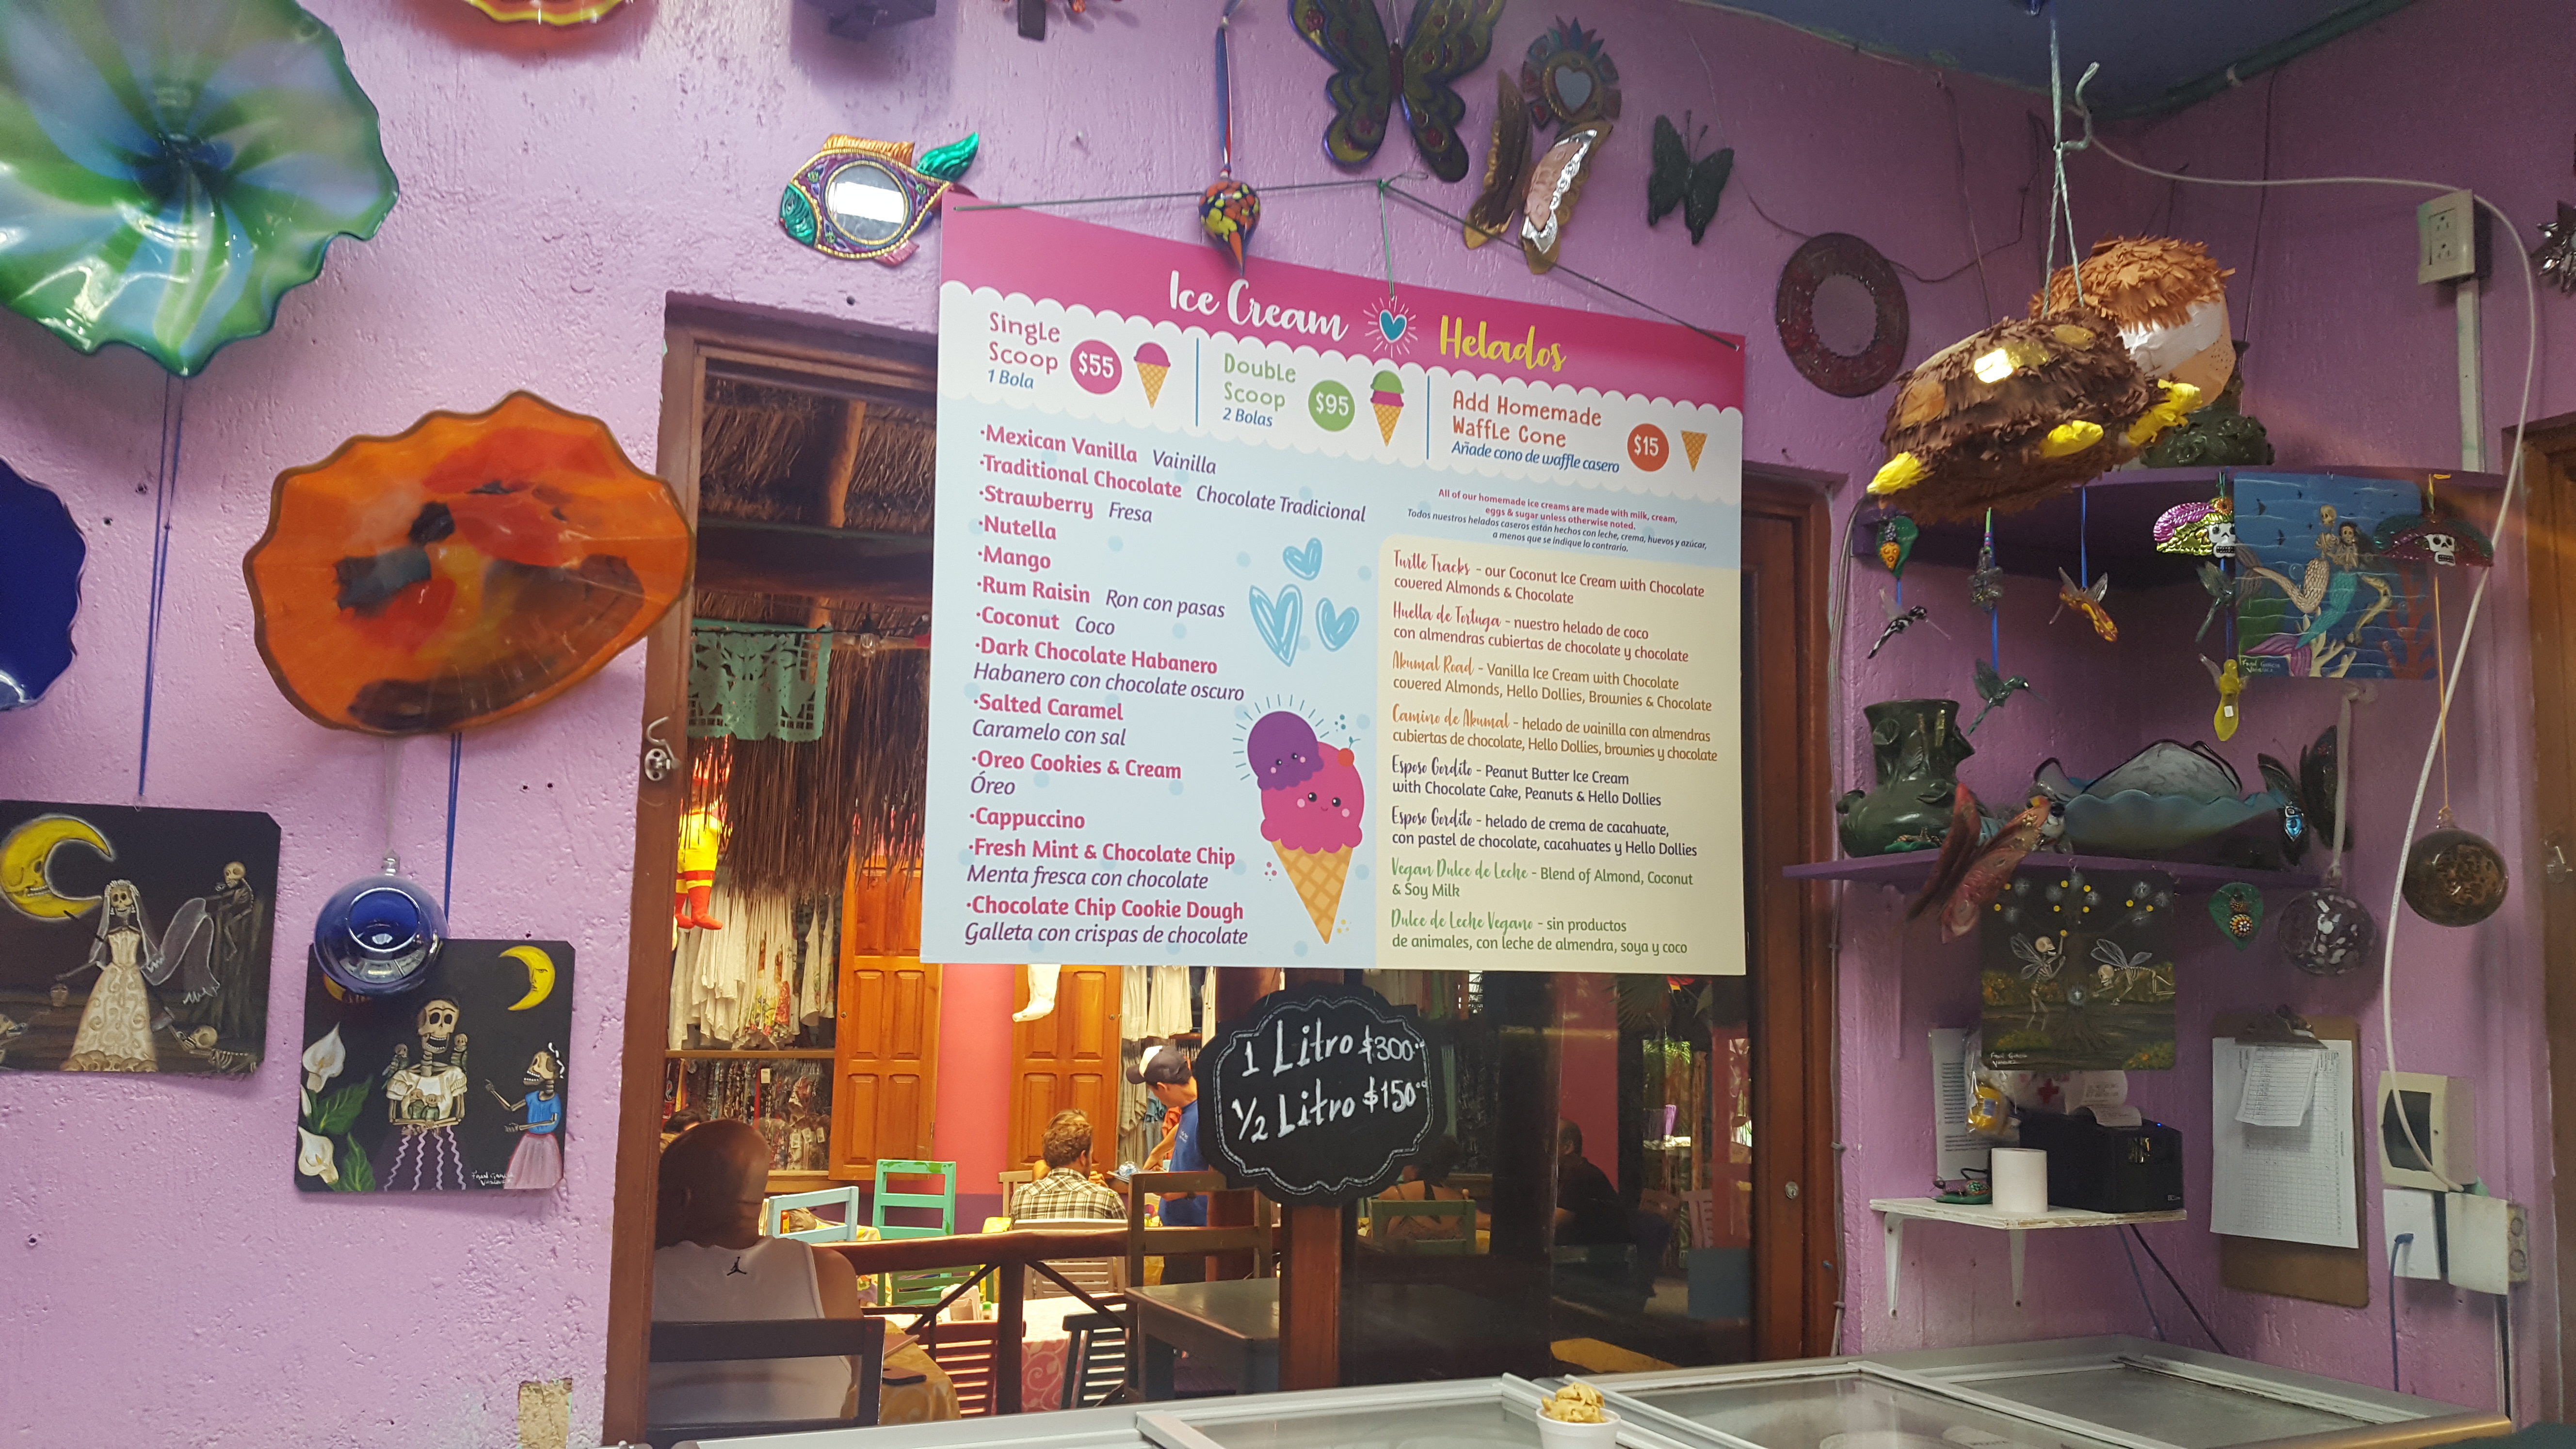 Ice Cream Helados
Single
Scoop $55
1 Bola
Double
Scoop $95
2 Bolas
Add Homemade
Waffle Cone $15
Añade cono de waffle casero
·Mexican Vanilla Vainilla
·Traditional Chocolate Chocolate Tradicional
·Strawberry Fresa
·Nutella
·Mango
·Rum Raisin Ron con pasas
·Coconut Coco
·Dark Chocolate Habanero
Habanero con chocolate oscuro
·Salted Caramel
Caramelo con sal
·Oreo Cookies & Cream
Óreo
·Cappuccino
·Fresh Mint & Chocolate Chip
Menta fresca con chocolate
·Chocolate Chip Cookie Dough
Galleta con crispas de chocolate
All of our homemade ice creams are made with milk, cream,
eggs & sugar unless otherwise noted.
Todos nuestros helados caseros están hechos con leche, crema, huevos y azúcar,
a menos que se indique lo contrario.
Turtle Tracks - our Coconut Ice Cream with Chocolate
covered Almonds & Chocolate
Huella de Tortuga - nuestro helado de coco
con almendras cubiertas de chocolate y chocolate
Akumal Road - Vanilla Ice Cream with Chocolate
covered Almonds, Hello Dollies, Brownies & Chocolate
Camino de Akumal - helado de vainilla con almendras
cubiertas de chocolate, Hello Dollies, brownies y chocolate
Esposo Gordito - Peanut Butter Ice Cream
with Chocolate Cake, Peanuts & Hello Dollies
Esposo Gordito - helado de crema de cacahuate,
con pastel de chocolate, cacahuates y Hello Dollies
Vegan Dulce de Leche - Blend of Almond, Coconut
& Soy Milk
Dulce de Leche Vegano - sin productos
de animales, con leche de almendra, soya y coco
1 Litro $300.00
1/2 Litro $150.00